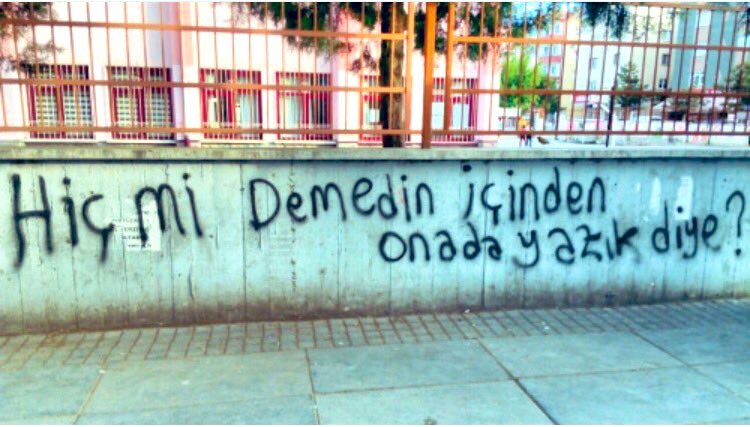 Hiç mi Demedin içinden
onada yazık diye?